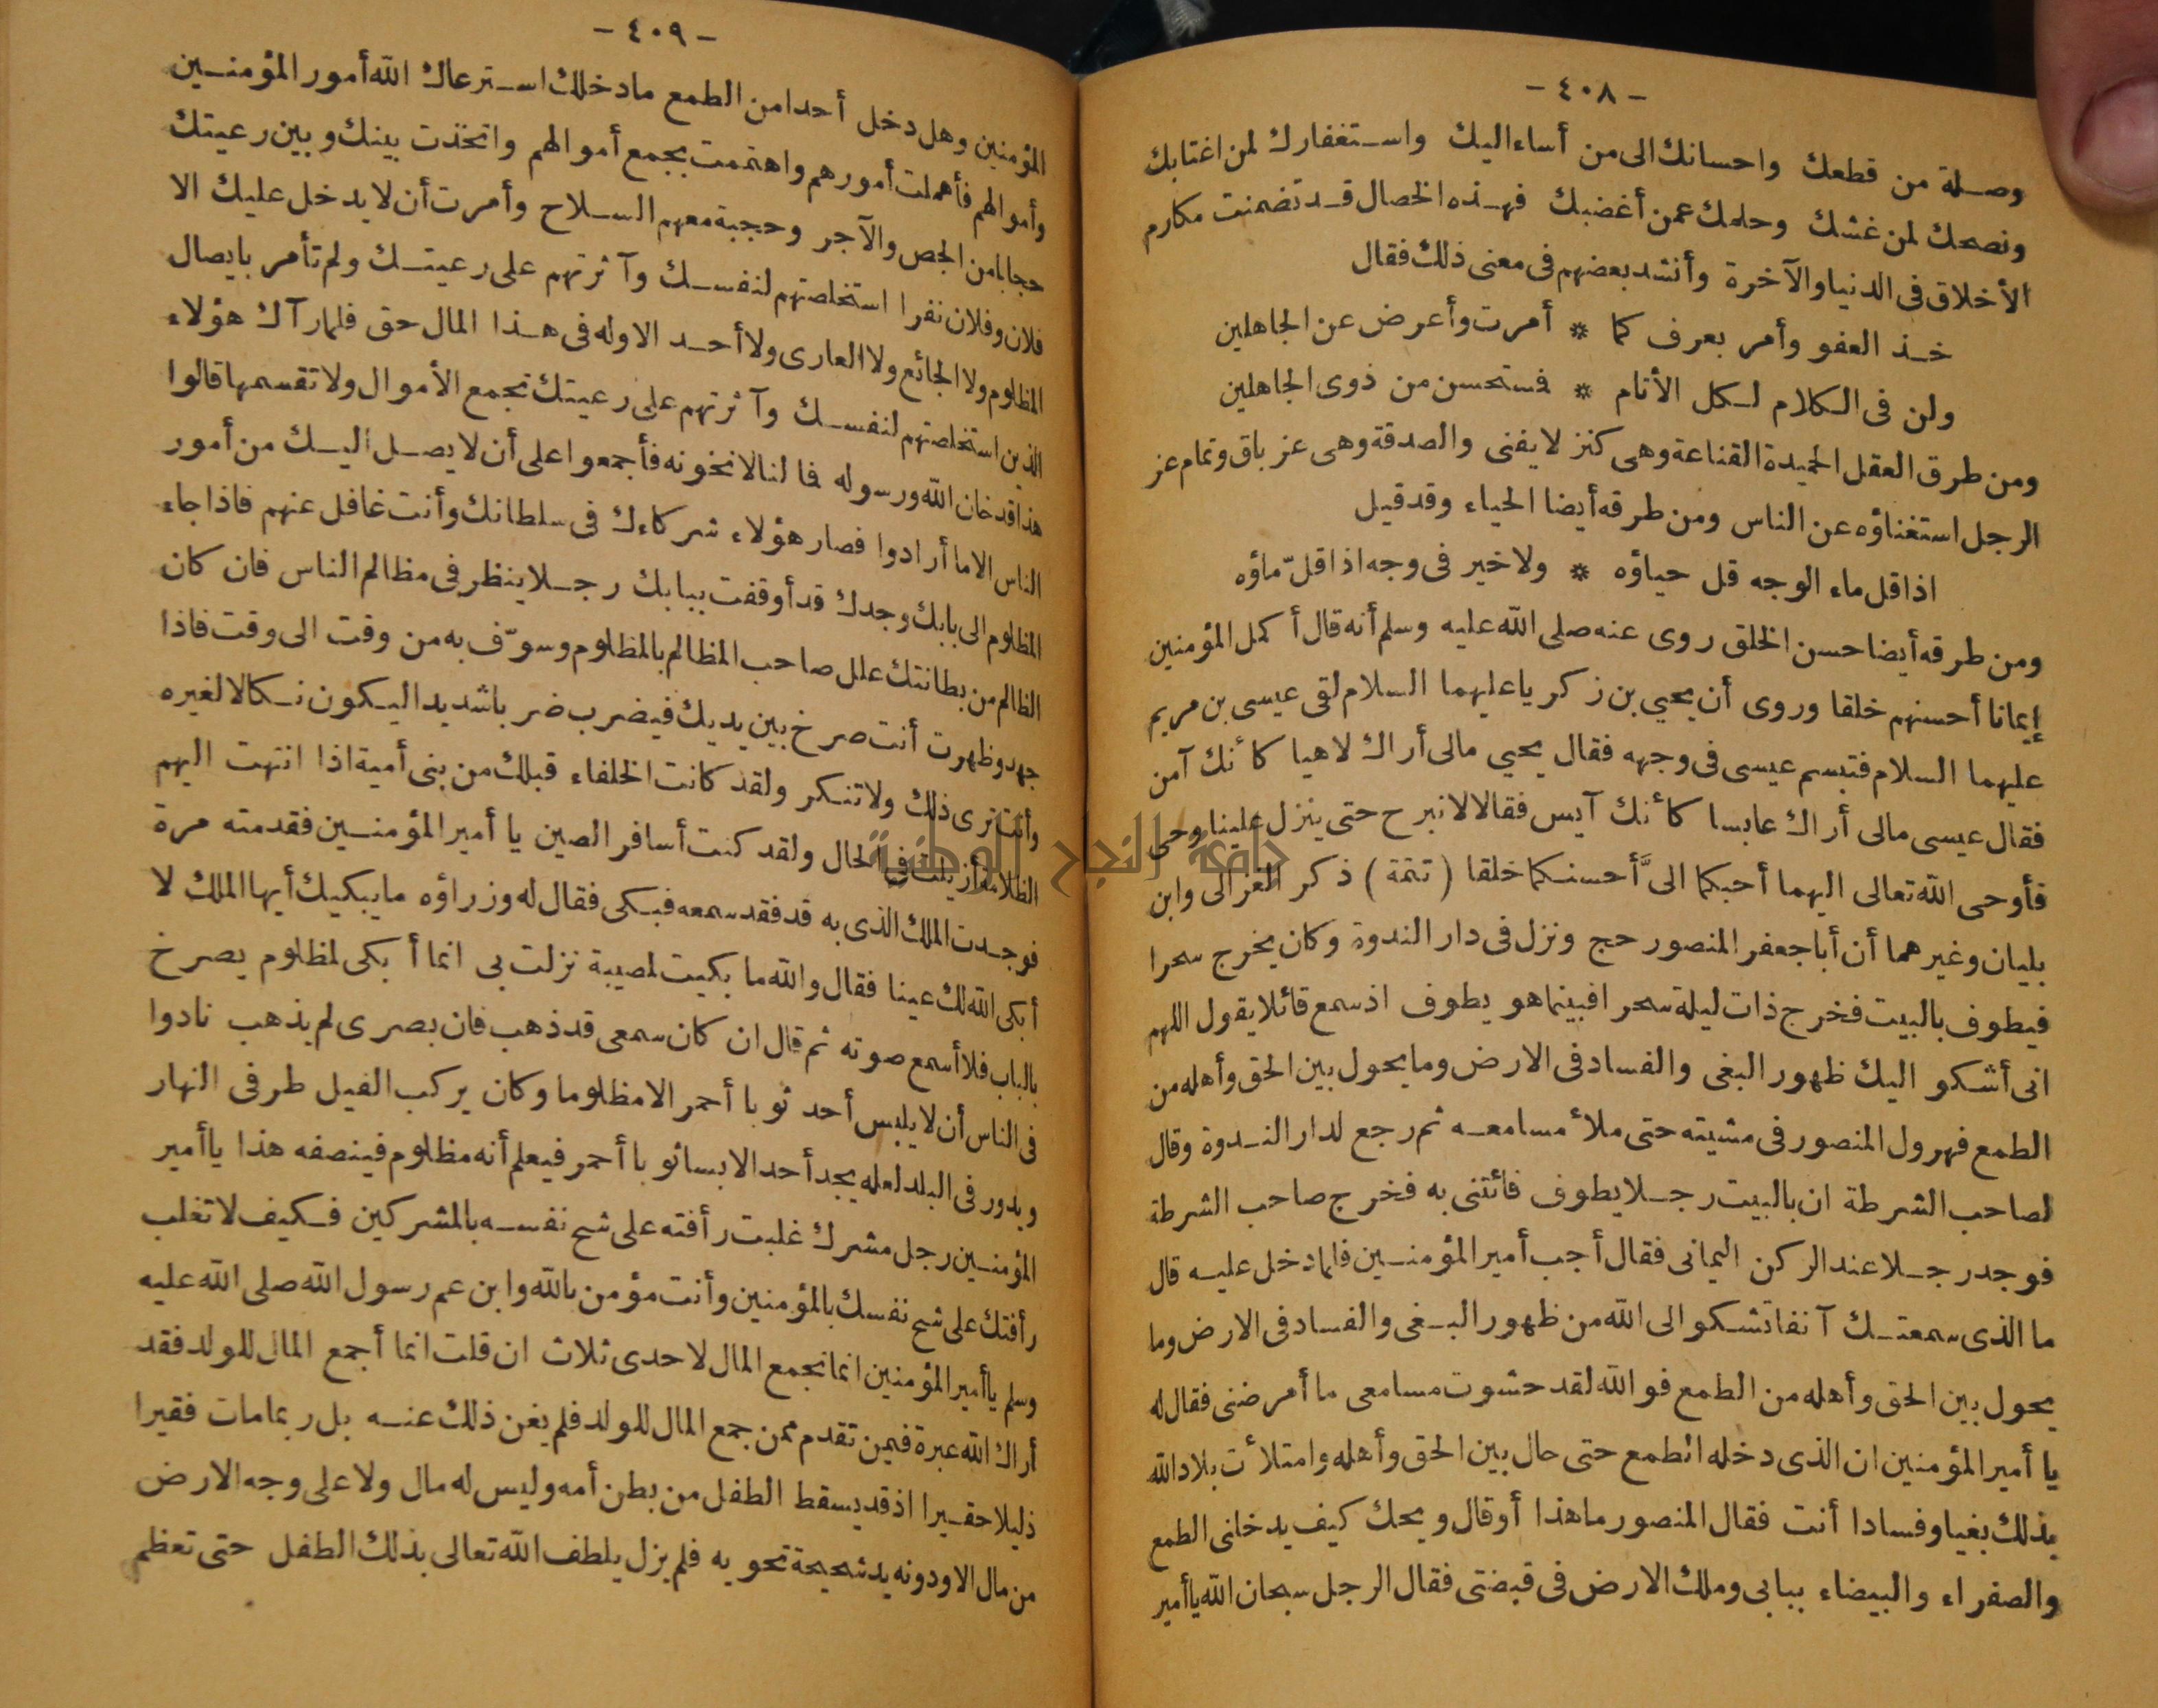 - ٤٠٨ -
وصلة من قطعك واحسانك الى من أساء اليك واستغفارك لمن اغتابك
ونصحك لمن غشك وحلمك عمن أغضبك فهذه الخصال قد تضمنت مكارم
الأخلاق فى الدنيا والآخرة وأنشد بعضهم فى معنى ذلك فقال
خذ العفو وأمر بعرف كما * أمرت وأعرض عن الجاهلين
ولن فى الكلام لكل الأنام * فستحسن من ذوى الجاهلين
ومن طرق العقل الحميدة القناعة وهى كنز لا يفنى والصدقة وهى عز باق وتمام عز
الرجل استغناؤه عن الناس ومن طرقه أيضا الحياء وقد قيل
اذا قل ماء الوجه قل حياؤه * ولا خير فى وجه اذا قلّ ماؤه
ومن طرقه أيضا حسن الخلق روى عنه صلى الله عليه وسلم أنه قال أكمل المؤمنين
إيمانا أحسنهم خلقا وروى أن يحيي بن زكريا عليهما السلام لقى عيسى بن مريم
عليهما السلام فتبسم عيسى فى وجهه فقال يحيي مالى أراك لاهيا كأنك آمن
فقال عيسى مالى أراك عابسا كأنك آيس فقالا لا نبرح حتى ينزل علينا وحى
فأوحى الله تعالى اليهما أحبكما الىَّ أحسنكما خلقا (تتمة) ذكر الغزالى وابن
بليان وغيرهما أن أبا جعفر المنصور حج ونزل فى دار الندوة وكان يخرج سحرا
فيطوف بالبيت فخرج ذات ليلة سحرا فبينما هو يطوف اذ سمع قائلا يقول اللهم
انى أشكو اليك ظهور البغى والفساد فى الارض وما يحول بين الحق وأهله من
الطمع فهرول المنصور فى مشيته حتى ملأ مسامعه ثم رجع لدار الندوة وقال
لصاحب الشرطة ان بالبيت رجلا يطوف فائتنى به فخرج صاحب الشرطة
فوجد رجلا عند الركن اليمانى فقال أجب أمير المؤمنين فلما دخل عليه قال
ما الذى سمعتك آنفا تشكو الى الله من ظهور البغى والفساد فى الارض وما
يحول بين الحق وأهله من الطمع فو الله لقد حشوت مسامعى ما أمرضنى فقال له
يا أمير المؤمنين ان الذى دخله الطمع حتى حال بين الحق وأهله وامتلأت بلاد الله
بذلك بغيا وفسادا أنت فقال المنصور ما هذا أو قال ويحك كيف يدخلنى الطمع
والصفراء والبيضاء ببابى وملك الارض فى قبضتى فقال الرجل سبحان الله يا أمير
- ٤٠٩ -
المؤمنين وهل دخل أحدا من الطمع ما دخلك استرعاك الله أمور المؤمنين
وأموالهم فأهملت أمورهم واهتممت بجمع أموالهم واتخذت بينك وبين رعيتك
حجابا من الجص والآجر وحجبة معهم السلاح وأمرت أن لا يدخل عليك الا
فلان وفلان نفرا استخلصتهم لنفسك وآثرتهم على رعيتك ولم تأمر بايصال
المظلوم ولا الجائع ولا العارى ولا أحد الا وله فى هذا المال حق فلما رآك هؤلاء
الذين استخلصتهم لنفسك وآثرتهم على رعيتك تجمع الأموال ولا تقسمها قالوا
هذا قد خان الله ورسوله فما لنا لا نخونه فأجمعوا على أن لا يصل اليك من أمور
الناس الا ما أرادوا فصار هؤلاء شركاءك فى سلطانك وأنت غافل عنهم فاذا جاء
المظلوم الى بابك وجدك قد أوقفت ببابك رجلا ينظر فى مظالم الناس فان كان
الظالم من بطانتك علل صاحب المظالم بالمظلوم وسوّف به من وقت الى وقت فاذا
جهد وظهرت أنت صرخ بين يديك فيضرب ضربا شديدا ليكون نكالا لغيره
وأنت ترى ذلك ولا تنكر ولقد كانت الخلفاء قبلك من بنى أمية اذا انتهت اليهم
الظلامة أزيلت فى الحال ولقد كنت أسافر الصين يا أمير المؤمنين فقدمته مرة
فوجدت الملك الذى به قد فقد سمعه فبكى فقال له وزراؤه ما يبكيك أيها الملك لا
أبكى الله لك عينا فقال والله ما بكيت لمصيبة نزلت بى انما أبكى لمظلوم يصرخ
بالباب فلا أسمع صوته ثم قال ان كان سمعى قد ذهب فان بصرى لم يذهب نادوا
فى الناس أن لا يلبس أحد ثوبا أحمر الا مظلوما وكان يركب الفيل طرفى النهار
ويدور فى البلد لعله يجد أحد الابسا ثوبا أحمر فيعلم أنه مظلوم فينصفه هذا يا أمير
المؤمنين رجل مشرك غلبت رأفته على شح نفسه بالمشركين فكيف لا تغلب
رأفتك على شح نفسك بالمؤمنين وأنت مؤمن بالله وابن عم رسول الله صلى الله عليه
وسلم يا أمير المؤمنين انما تجمع المال لاحدى ثلاث ان قلت انما أجمع المال للولد فقد
أراك الله عبرة فيمن تقدم ممن جمع المال للولد فلم يغن ذلك عنه بل ربما مات فقيرا
ذليلا حقيرا اذ قد يسقط الطفل من بطن أمه وليس له مال ولا على وجه الارض
من مال الا ودونه يد شحيحة تحويه فلم يزل يلطف الله تعالى بذلك الطفل حتى تعظم
جامعة النجاح الوطنية